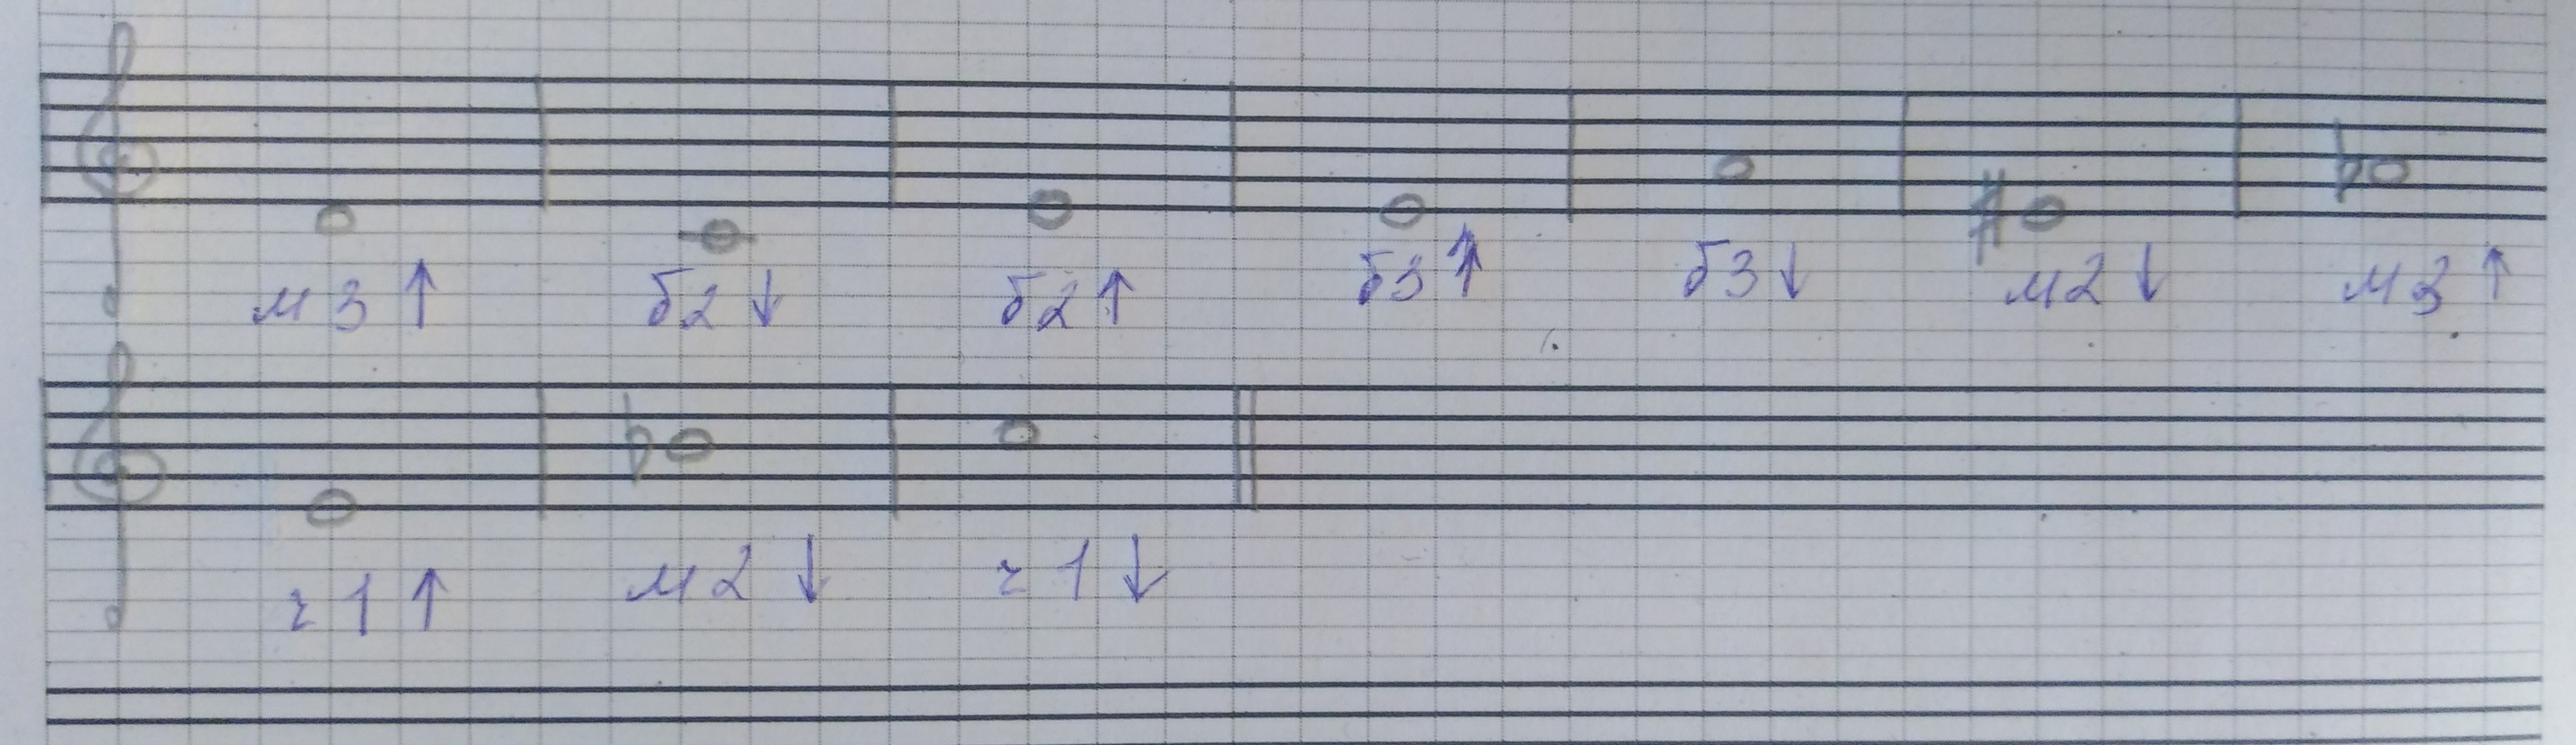 м3↑ б2↓ б2↑ б3↑ б3↓ м2↓ м3↑
ч1↑ м2↓ ч1↓